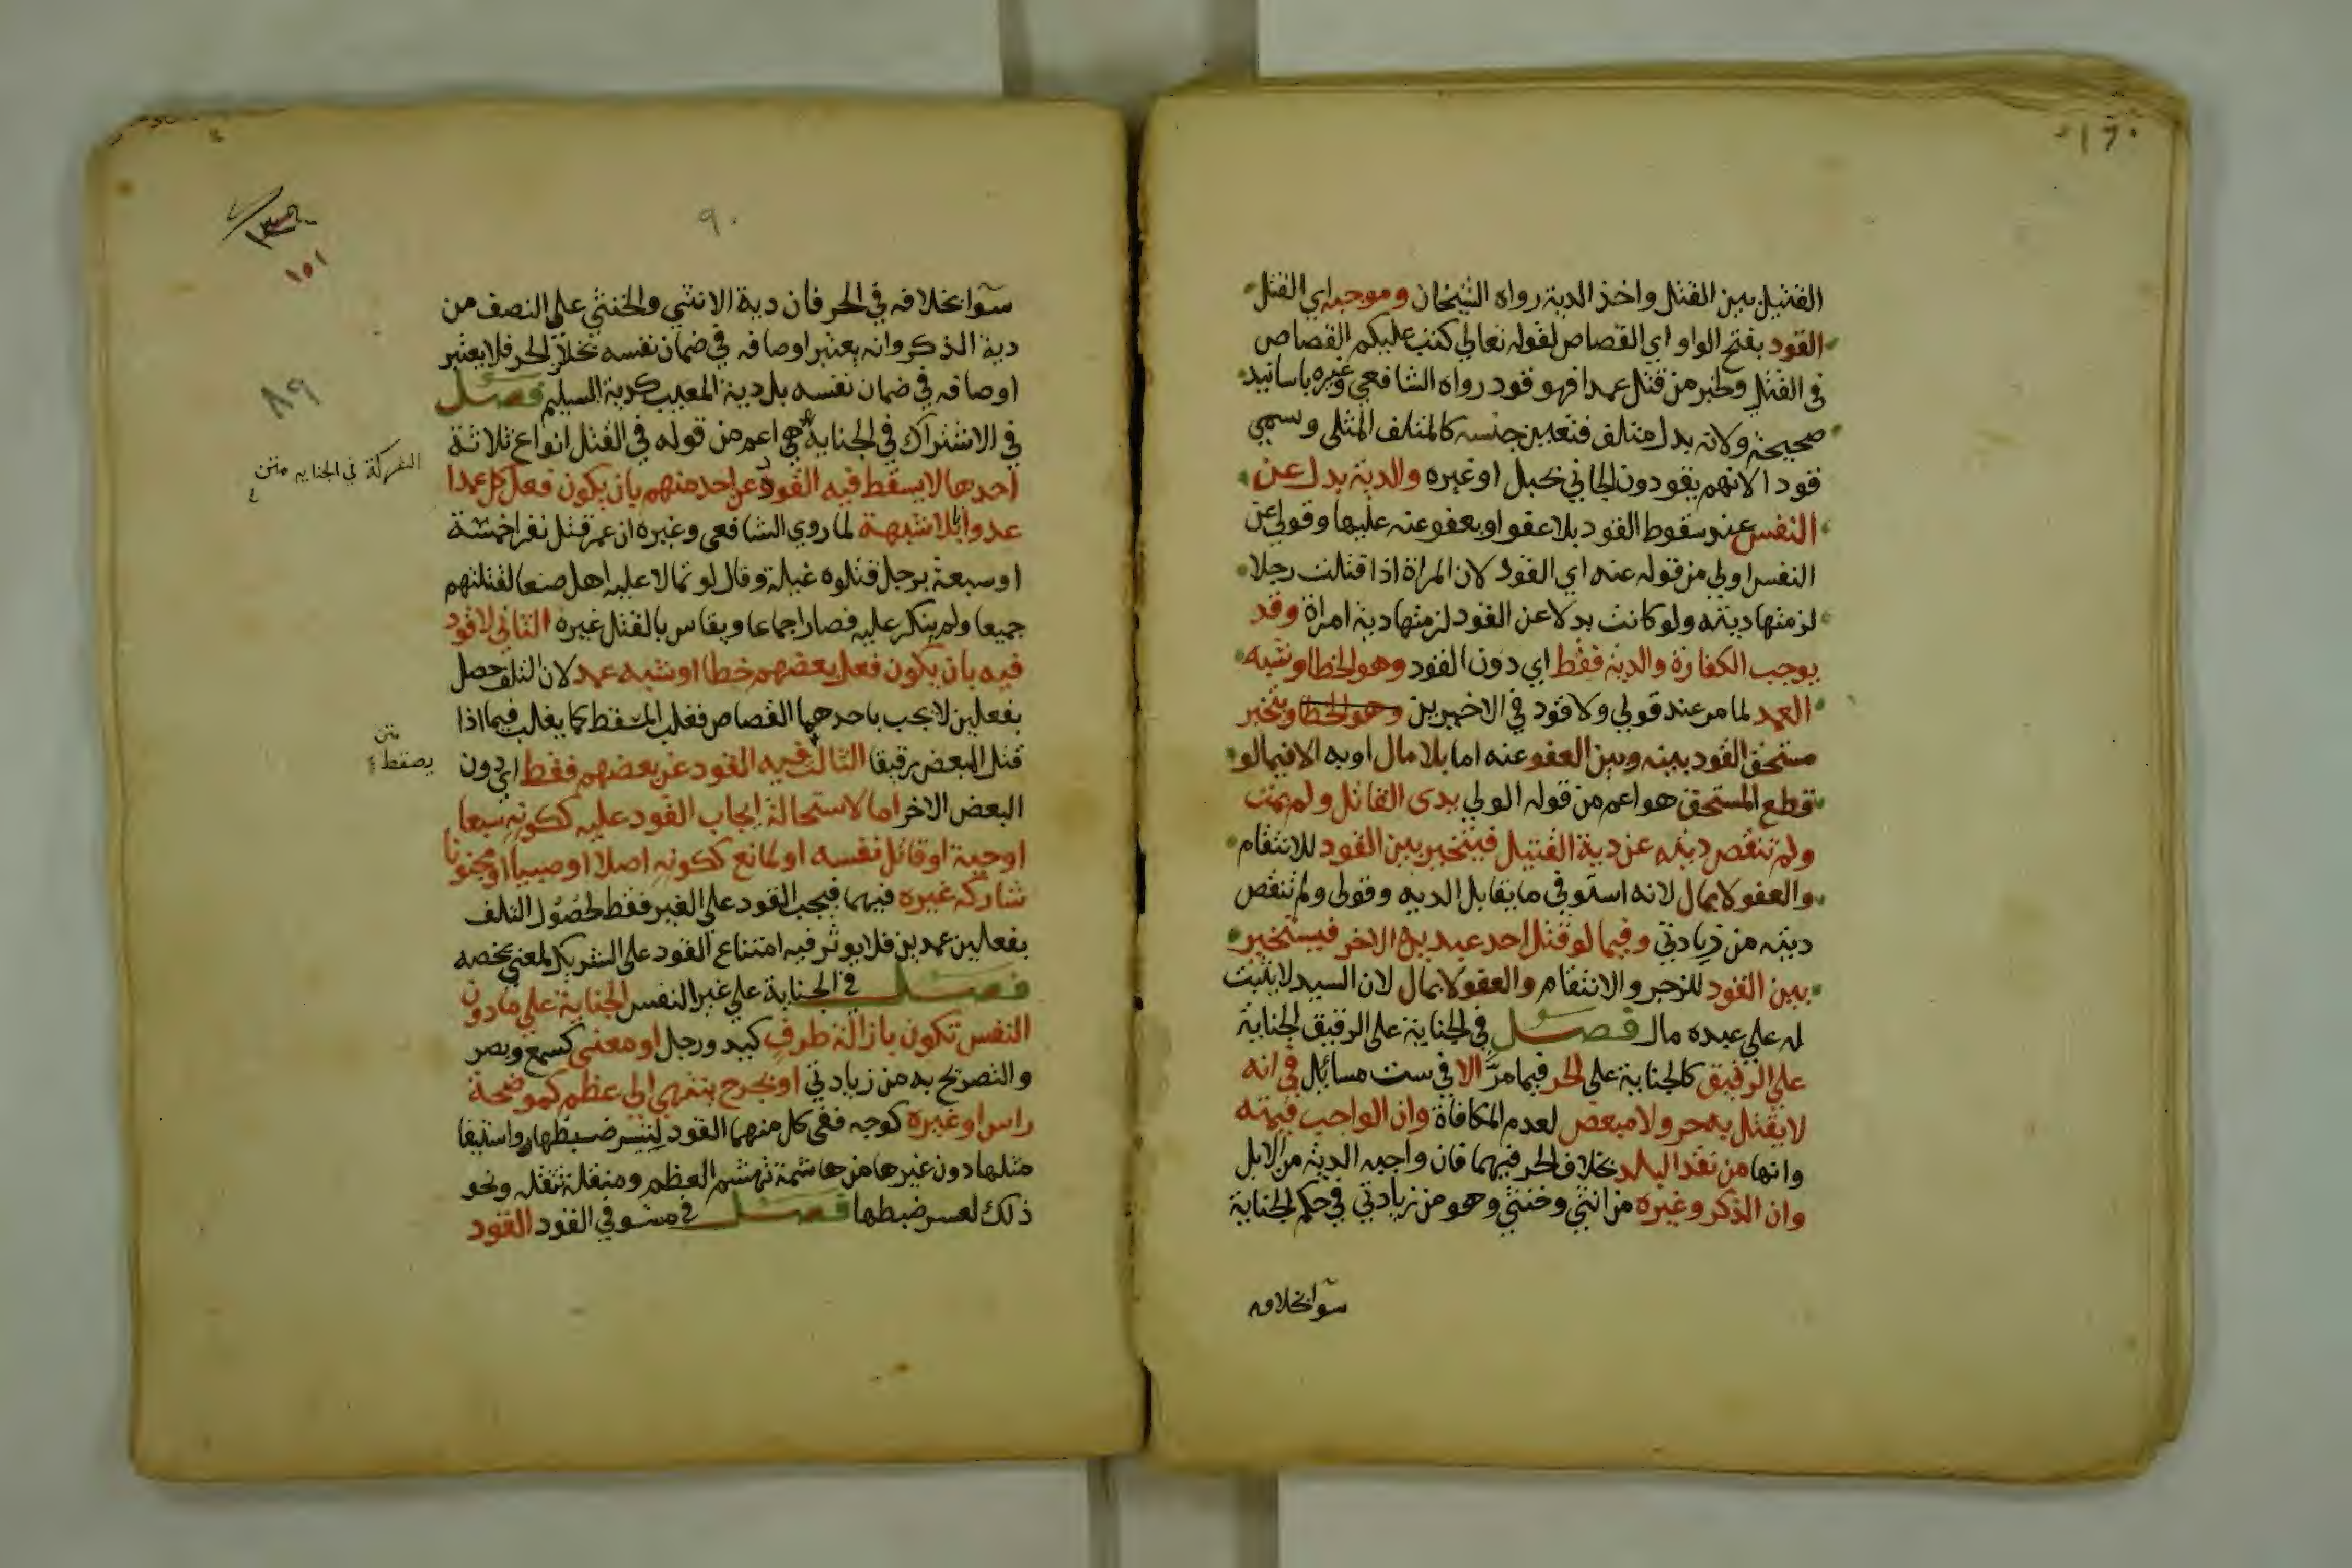 القتيل بين القتل واخذ الدية رواه الشيخان وموجبه اي القتل
القود بفتح الواو اي القصاص لقوله تعالي كتب عليكم القصاص
في القتلي وخبر من قتل عمدا فهو قود رواه الشافعي وغيره باسانيد
صحيحة ولانه بدل متلف فتعين جنسه كالمتلف المثلي وسمي
قودا لانهم يقودون الجاني بحبل او غيره والدية بدل عن
النفس عند سقوط القود بلا عفو او بعفو عنه عليها وقولي عن
النفس اولي من قوله عنه اي القود لان المراة اذا قتلت رجلا
لزمتها ديته ولو كانت بدلا عن القود لزمتها دية امراة وقد
يوجب الكفارة والدية فقط اي دون القود وهو الخطا وشبه
العمد لما مر عند قولي ولا قود في الاخيرين وهو الخطا ويتخير
مستحق القود بينه وبين العفو عنه اما بلا مال او به الا فيما لو
قطع المستحق هو اعم من قوله الولي يدي القاتل ولم يمت
ولم تنقص ديته عن دية القتيل فيتخير بين القود للانتقام
والعفو لا بمال لانه استوفي ما يقابل الديه وقولي ولم تنقص
ديته من زيادتي وفيما لو قتل احد عبديه الاخر فيتخير
بين القود للزجر والانتقام والعفو لا بمال لان السيد لا يثبت
له علي عبده مال فصل في الجناية علي الرقيق الجناية
علي الرقيق كالجناية علي الحر فيما مر الا في ست مسائل في انه
لا يقتل به حر ولا مبعض لعدم المكافاة وان الواجب قيمته
وانها من نقد البلد بخلاف الحر فيهما فان واجبه الدية من الابل
وان الذكر وغيره من انثي وخنثي وهو من زيادتي في حكم الجناية
سوا بخلافه
٩٠
١٥١
٨٩
سوا بخلافه في الحر فان دية الانثي والخنثي علي النصف من
دية الذكر وانه يعتبر اوصافه في ضمان نفسه بخلاف الحر فلا يعتبر
اوصافه في ضمان نفسه بل دية المعيب كدية السليم فصل
في الاشتراك في الجناية هي اعم من قوله في القتل انواع ثلاثة
الشركة في الجنايه متن
احدها لا يسقط فيه القود عن احد منهم بان يكون فعل كل عمدا
عدوانا بلا شبهة لما روي الشافعي وغيره ان عمر قتل نفرا خمسة
او سبعة برجل قتلوه غيلة وقال لو تمالا عليه اهل صنعا لقتلتهم
جميعا ولم ينكر عليه فصار اجماعا ويقاس بالقتل غيره الثاني لا قود
فيه بان يكون فعل بعضهم خطا او شبه عمد لان التلف حصل
بفعلين لا يجب باحدهما القصاص فغلب المسقط كما يغلب فيما اذا
قتل المبعض رقيقا الثالث فيه القود عن بعضهم فقط اي دون
متن
يسقط
البعض الاخر اما لاستحالة ايجاب القود عليه ككونه سبعا
او حية او قاتل نفسه او لمانع ككونه اصلا او صبيا او مجنونا
شاركه غيره فيهما فيجب القود علي الغير فقط لحصول التلف
بفعلين عمدين فلا يوثر فيه امتناع القود علي الشريك لمعني يخصه
فصل في الجناية علي غير النفس الجناية علي ما دون
النفس تكون بازالة طرف كيد ورجل او معني كسمع وبصر
والتصريح به من زيادتي او بجرح ينتهي الي عظم كموضحة
راس او غيره كوجه ففي كل منهما القود لتيسر ضبطها واستيفا
مثلها دون غيرها من هاشمة تهشم العظم ومنقلة تنقله ونحو
ذلك لعسر ضبطها فصل في مستوفي القود القود